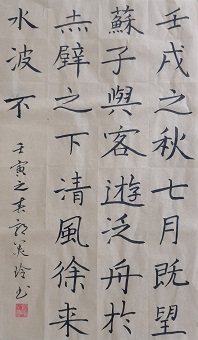 壬戌之秋七月既望
蘇子與客遊泛舟於
赤壁之下清風徐来
水波不
壬寅之春郭美玲书